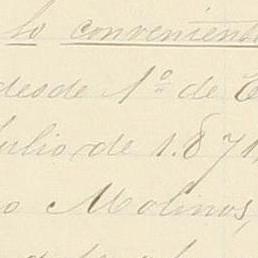 lo conveniente
desde 1º de E
Julio de 1.871,
o Molinos,